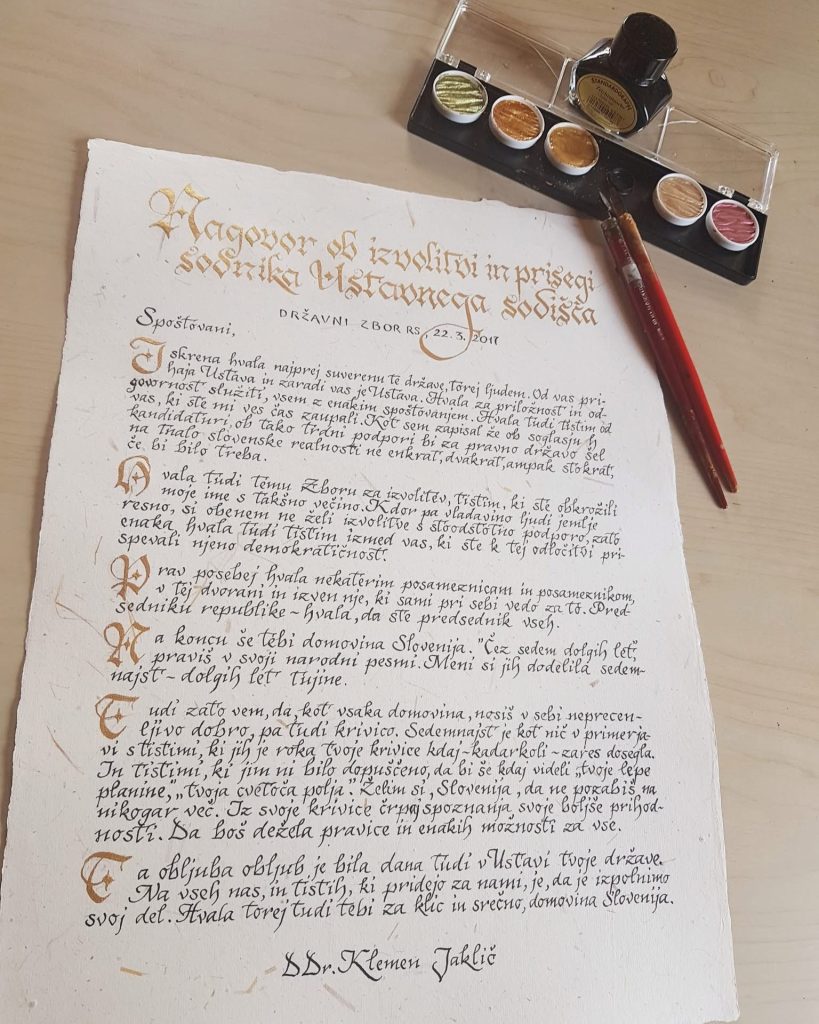 STANDARDGRAPH
Nagovor ob izvolitvi in prisegi
sodnika Ustavnega sodišča
DRŽAVNI ZBOR RS, 22.3.2017
Spoštovani,
Iskrena hvala najprej suverenu te države, torej ljudem. Od vas pri-
haja Ustava in zaradi vas je Ustava. Hvala za priložnost in od-
govornost služiti, vsem z enakim spoštovanjem. Hvala tudi tistim od
vas, ki ste mi ves čas zaupali. Kot sem zapisal že ob soglasju h
kandidaturi, ob tako trdni podpori bi za pravno državo šel
na tnalo slovenske realnosti ne enkrat, dvakrat, ampak stokrat,
če bi bilo treba.
Hvala tudi temu Zboru za izvolitev, tistim, ki ste obkrožili
moje ime s takšno večino. Kdor pa vladavino ljudi jemlje
resno, si obenem ne želi izvolitve s stoodstotno podporo, zato
enaka hvala tudi tistim izmed vas, ki ste k tej odločitvi pri-
spevali njeno demokratičnost.
Prav posebej hvala nekaterim posameznicam in posameznikom,
v tej dvorani in izven nje, ki sami pri sebi vedo za to. Pred-
sedniku republike - hvala, da ste predsednik vseh.
Na koncu še tebi domovina Slovenija. "Čez sedem dolgih let,
praviš v svoji narodni pesmi. Meni si jih dodelila sedem-
najst - dolgih let tujine.
Tudi zato vem, da, kot vsaka domovina, nosiš v sebi neprecen-
ljivo dobro, pa tudi krivico. Sedemnajst je kot nič v primerja-
vi s tistimi, ki jih je roka tvoje krivice kdaj-kadarkoli-zares dosegla.
In tistimi, ki jim ni bilo dopuščeno, da bi še kdaj videli „tvoje lepe
planine," „tvoja cvetoča polja". Želim si, Slovenija, da ne pozabiš na
nikogar več. Iz svoje krivice črpaj spoznanja svoje boljše prihod-
nosti. Da boš dežela pravice in enakih možnosti za vse.
Ta obljuba obljub je bila dana tudi v Ustavi tvoje države.
Na vseh nas, in tistih, ki pridejo za nami, je, da je izpolnimo
svoj del. Hvala torej tudi tebi za klic in srečno, domovina Slovenija.
DDr. Klemen Jaklič